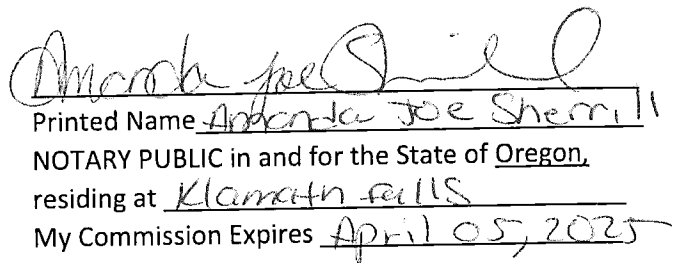 Amanda Joe Sherrill
Printed Name Amanda Joe Sherrill
NOTARY PUBLIC in and for the State of Oregon,
residing at Klamath falls
My Commission Expires April 05, 2025